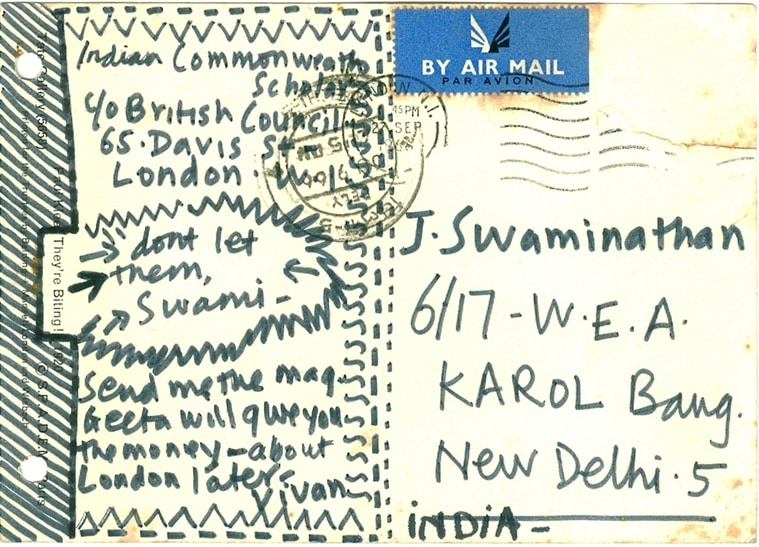 Indian Commonwealth
Scholar
c/o British Council
65. Davis St
London W1
dont let
them,
Swami-
Send me the mag.
Geeta will give you
the money - about
London later -
Vivan
BY AIR MAIL
PAR AVION
45PM
27 SEP
J. Swaminathan
6/17 - W.E.A.
KAROL Baug.
New Delhi. 5
INDIA -
They're Biting! 1920
© S.P.A.D.E.M. Paris